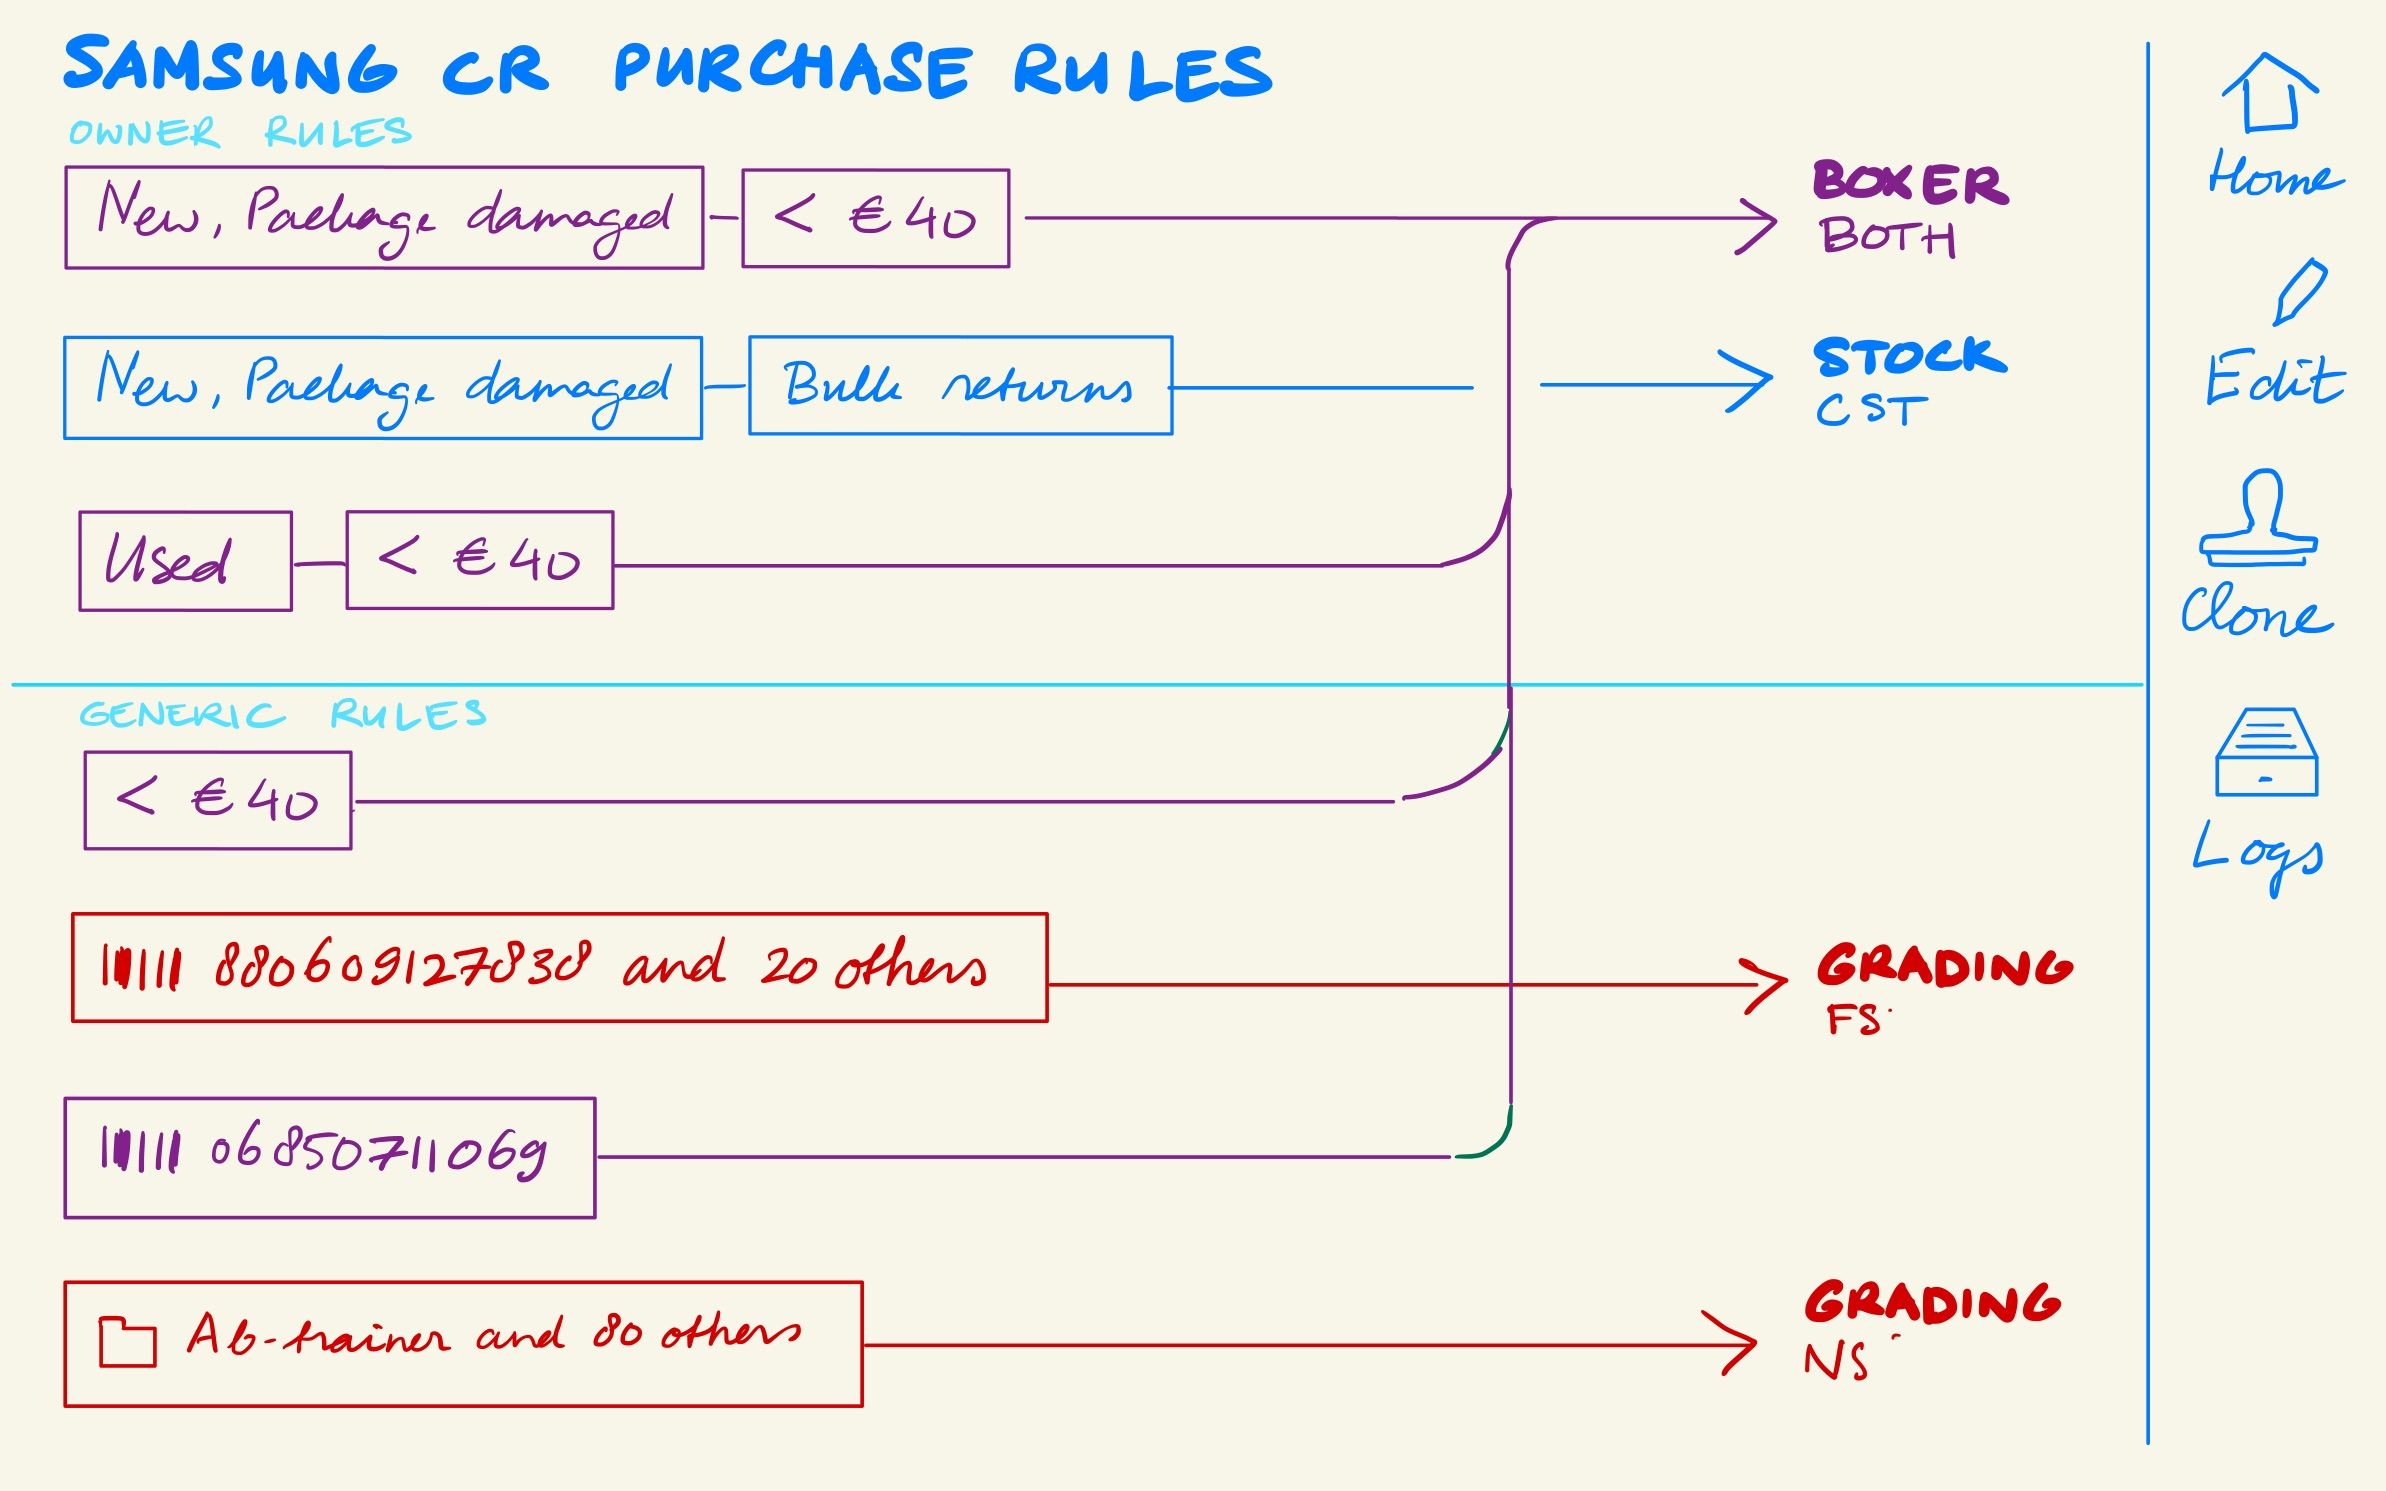 SAMSUNG CR PURCHASE RULES
OWNER RULES
New, Package damaged < €40 BOXER
BOTH
New, Package damaged Bulk returns STOCK
CST
Used < €40
GENERIC RULES
< €40
880609127838 and 20 others GRADING
FS
06850711069
Ab-trainer and 80 others GRADING
NS
Home
Edit
Clone
Logs